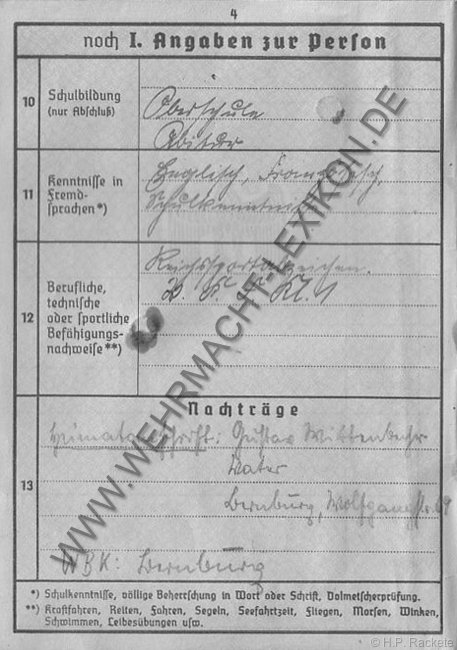 4
noch I. Angaben zur Person
10
Schulbildung
(nur Abschluß)
Oberschule
Abitur
11
Kenntnisse in
Fremd-
sprachen*)
Englisch, Französisch,
Schulkenntnisse
12
Berufliche,
technische
oder sportliche
Befähigungs-
nachweise**)
Reichssportabzeichen.
Kl. 1
Nachträge
13
Heimatanschrift: Gustav Wittenbecher
Vater
Bernburg, Wolfgangstr.
WBK: Bernburg
*) Schulkenntnisse, völlige Beherrschung in Wort oder Schrift, Dolmetscherprüfung.
**) Kraftfahren, Reiten, Fahren, Segeln, Seefahrtzeit, Fliegen, Morsen, Winken,
Schwimmen, Leibesübungen usw.
WWW.WEHRMACHT-LEXIKON.DE
© H.P. Rackete